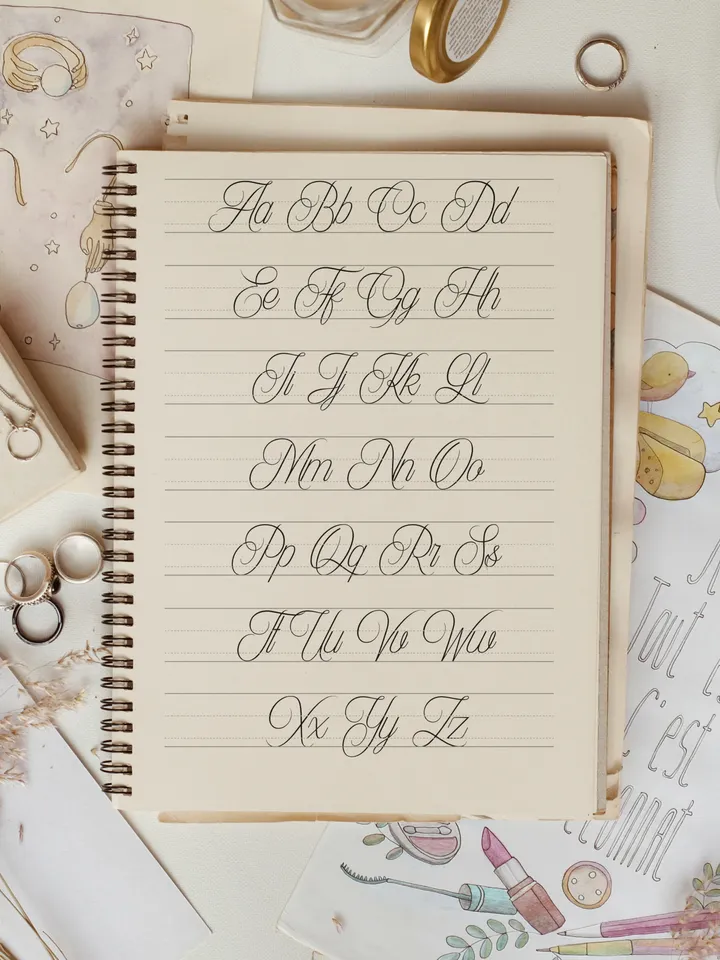 Aa Bb Cc Dd
Ee Ff Gg Hh
Ii Jj Kk Ll
Mm Nn Oo
Pp Qq Rr Ss
Tt Uu Vv Ww
Xx Yy Zz
Tout
C'est